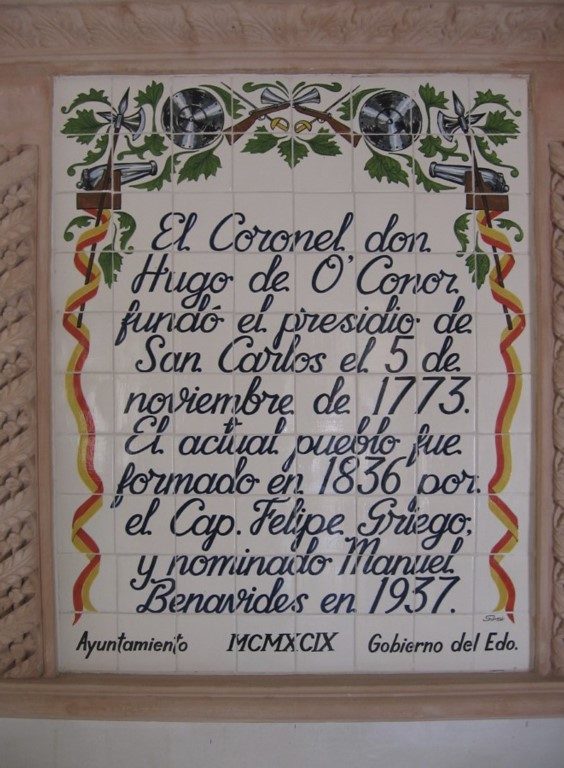 El Coronel don
Hugo de O'Conor
fundó el presidio de
San Carlos el 5 de
noviembre de 1773.
El actual pueblo fue
formado en 1836 por
el Cap. Felipe Griego,
y nominado Manuel
Benavides en 1937.
Ayuntamiento MCMXCIX Gobierno del Edo.